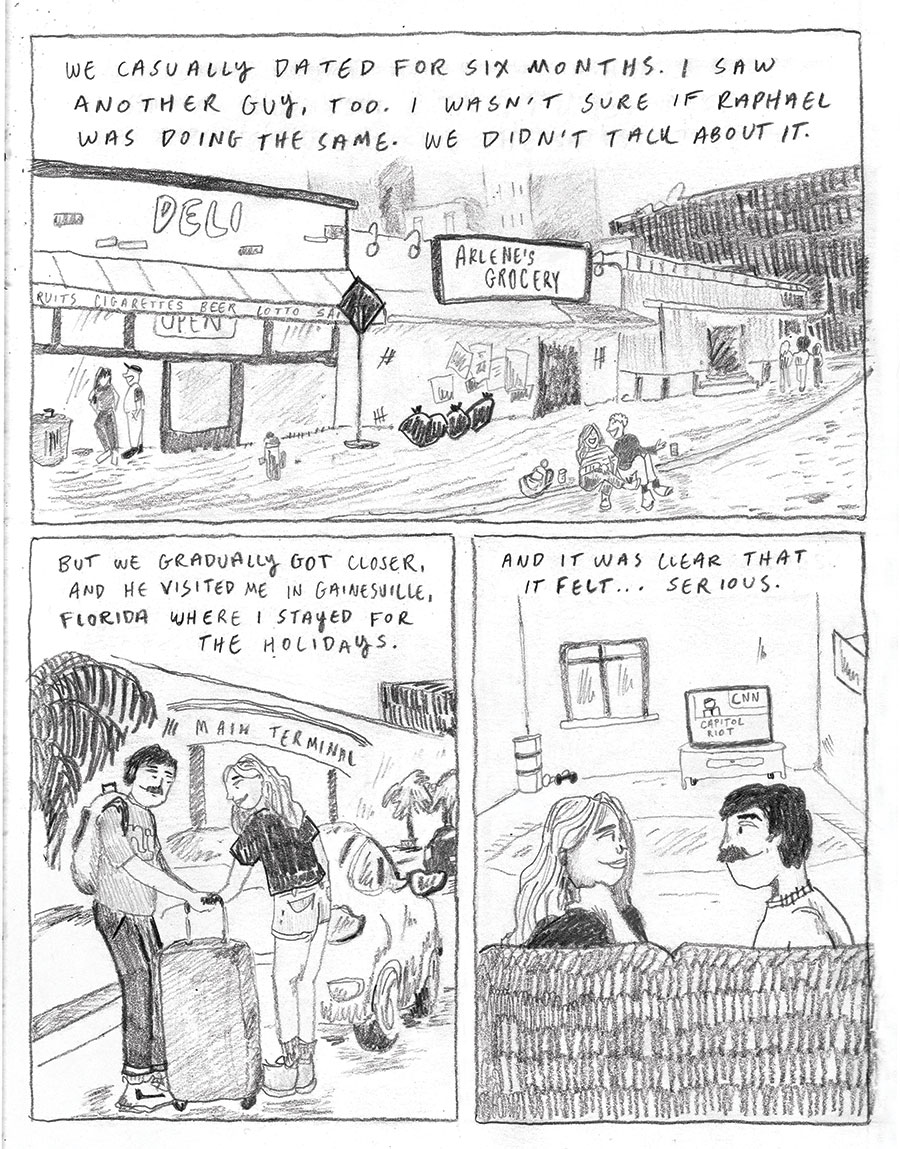 WE CASUALLY DATED FOR SIX MONTHS. I SAW
ANOTHER GUY, TOO. I WASN'T SURE IF RAPHAEL
WAS DOING THE SAME. WE DIDN'T TALK ABOUT IT.
DELI
RUITS CIGARETTES BEER LOTTO SA
OPEN
ARLENE'S
GROCERY
BUT WE GRADUALLY GOT CLOSER,
AND HE VISITED ME IN GAINESVILLE,
FLORIDA WHERE I STAYED FOR
THE HOLIDAYS.
MAIN TERMINAL
AND IT WAS CLEAR THAT
IT FELT... SERIOUS.
CNN
CAPITOL
RIOT